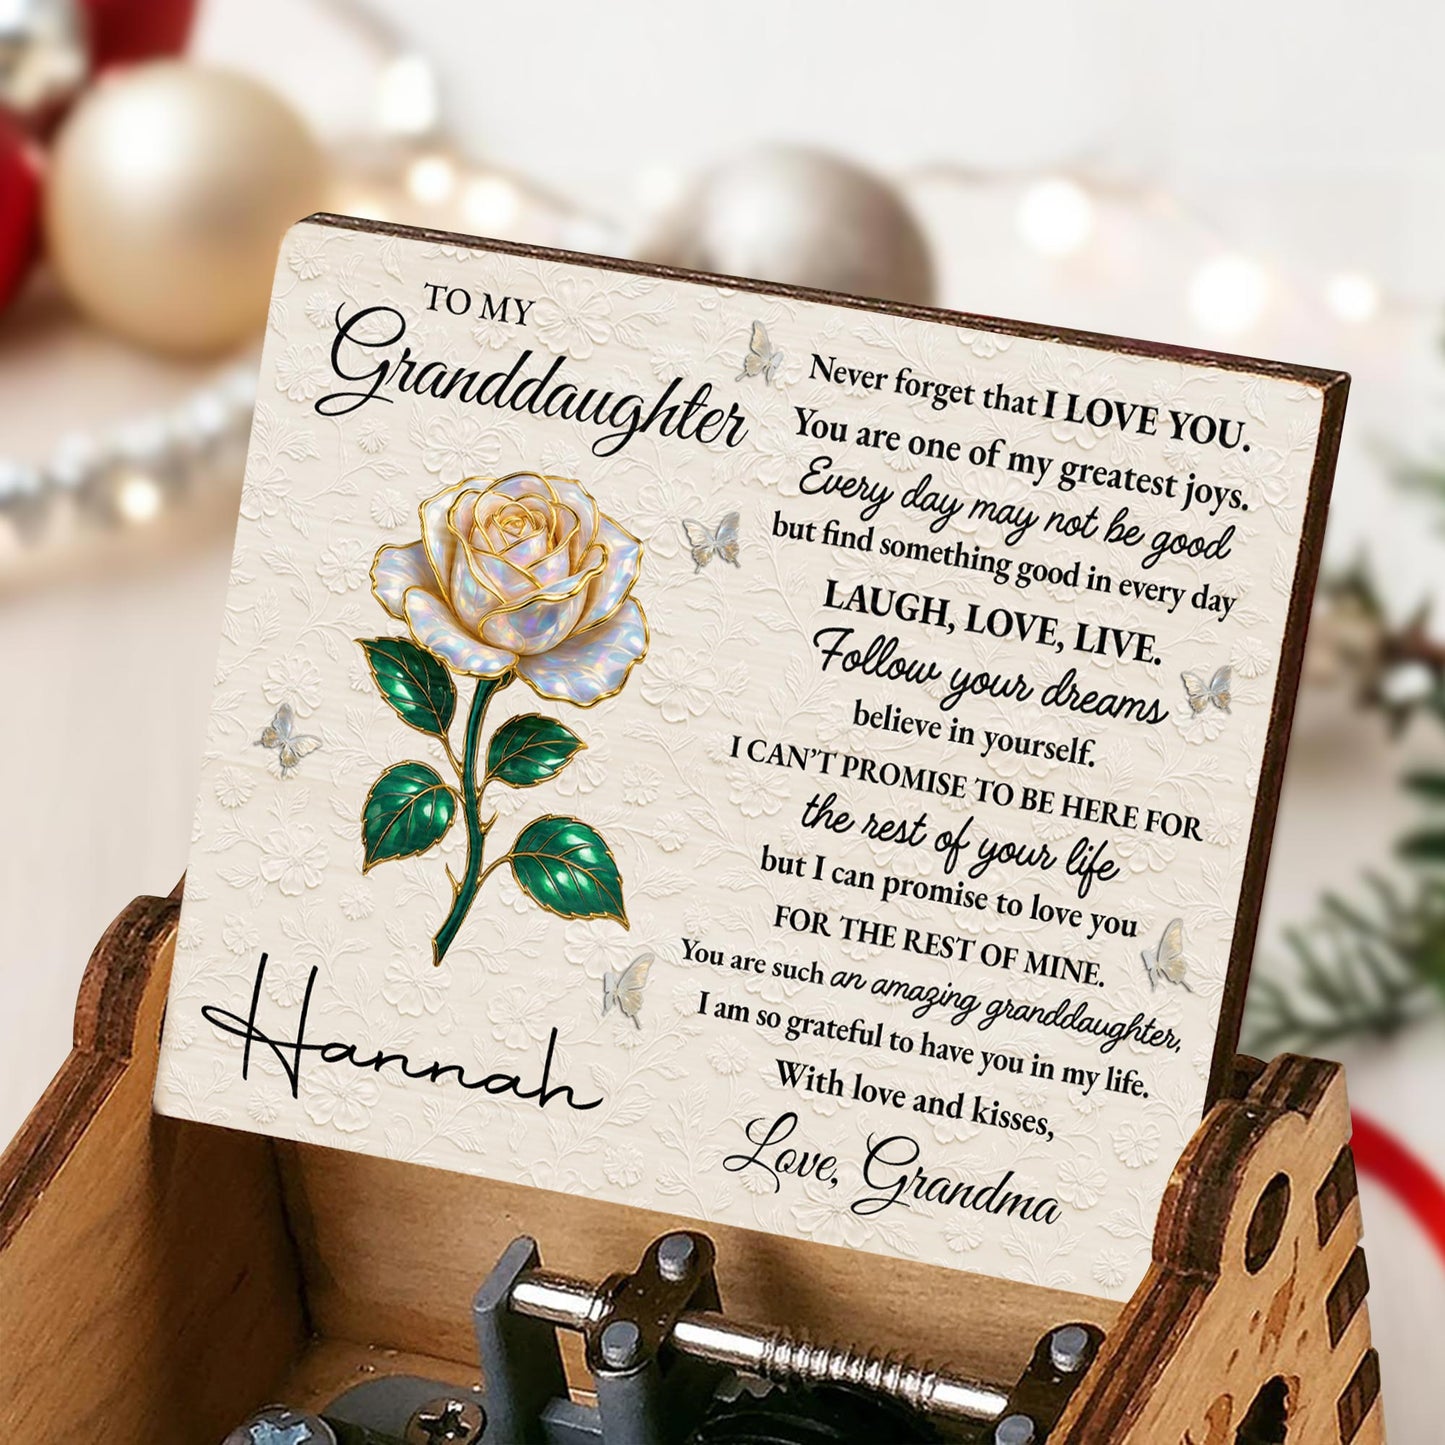 TO MY
Granddaughter
Never forget that I LOVE YOU.
You are one of my greatest joys.
Every day may not be good
but find something good in every day
LAUGH, LOVE, LIVE.
Follow your dreams
believe in yourself.
I CAN'T PROMISE TO BE HERE FOR
the rest of your life
but I can promise to love you
FOR THE REST OF MINE.
You are such an amazing granddaughter,
I am so grateful to have you in my life.
With love and kisses,
Love, Grandma
Hannah